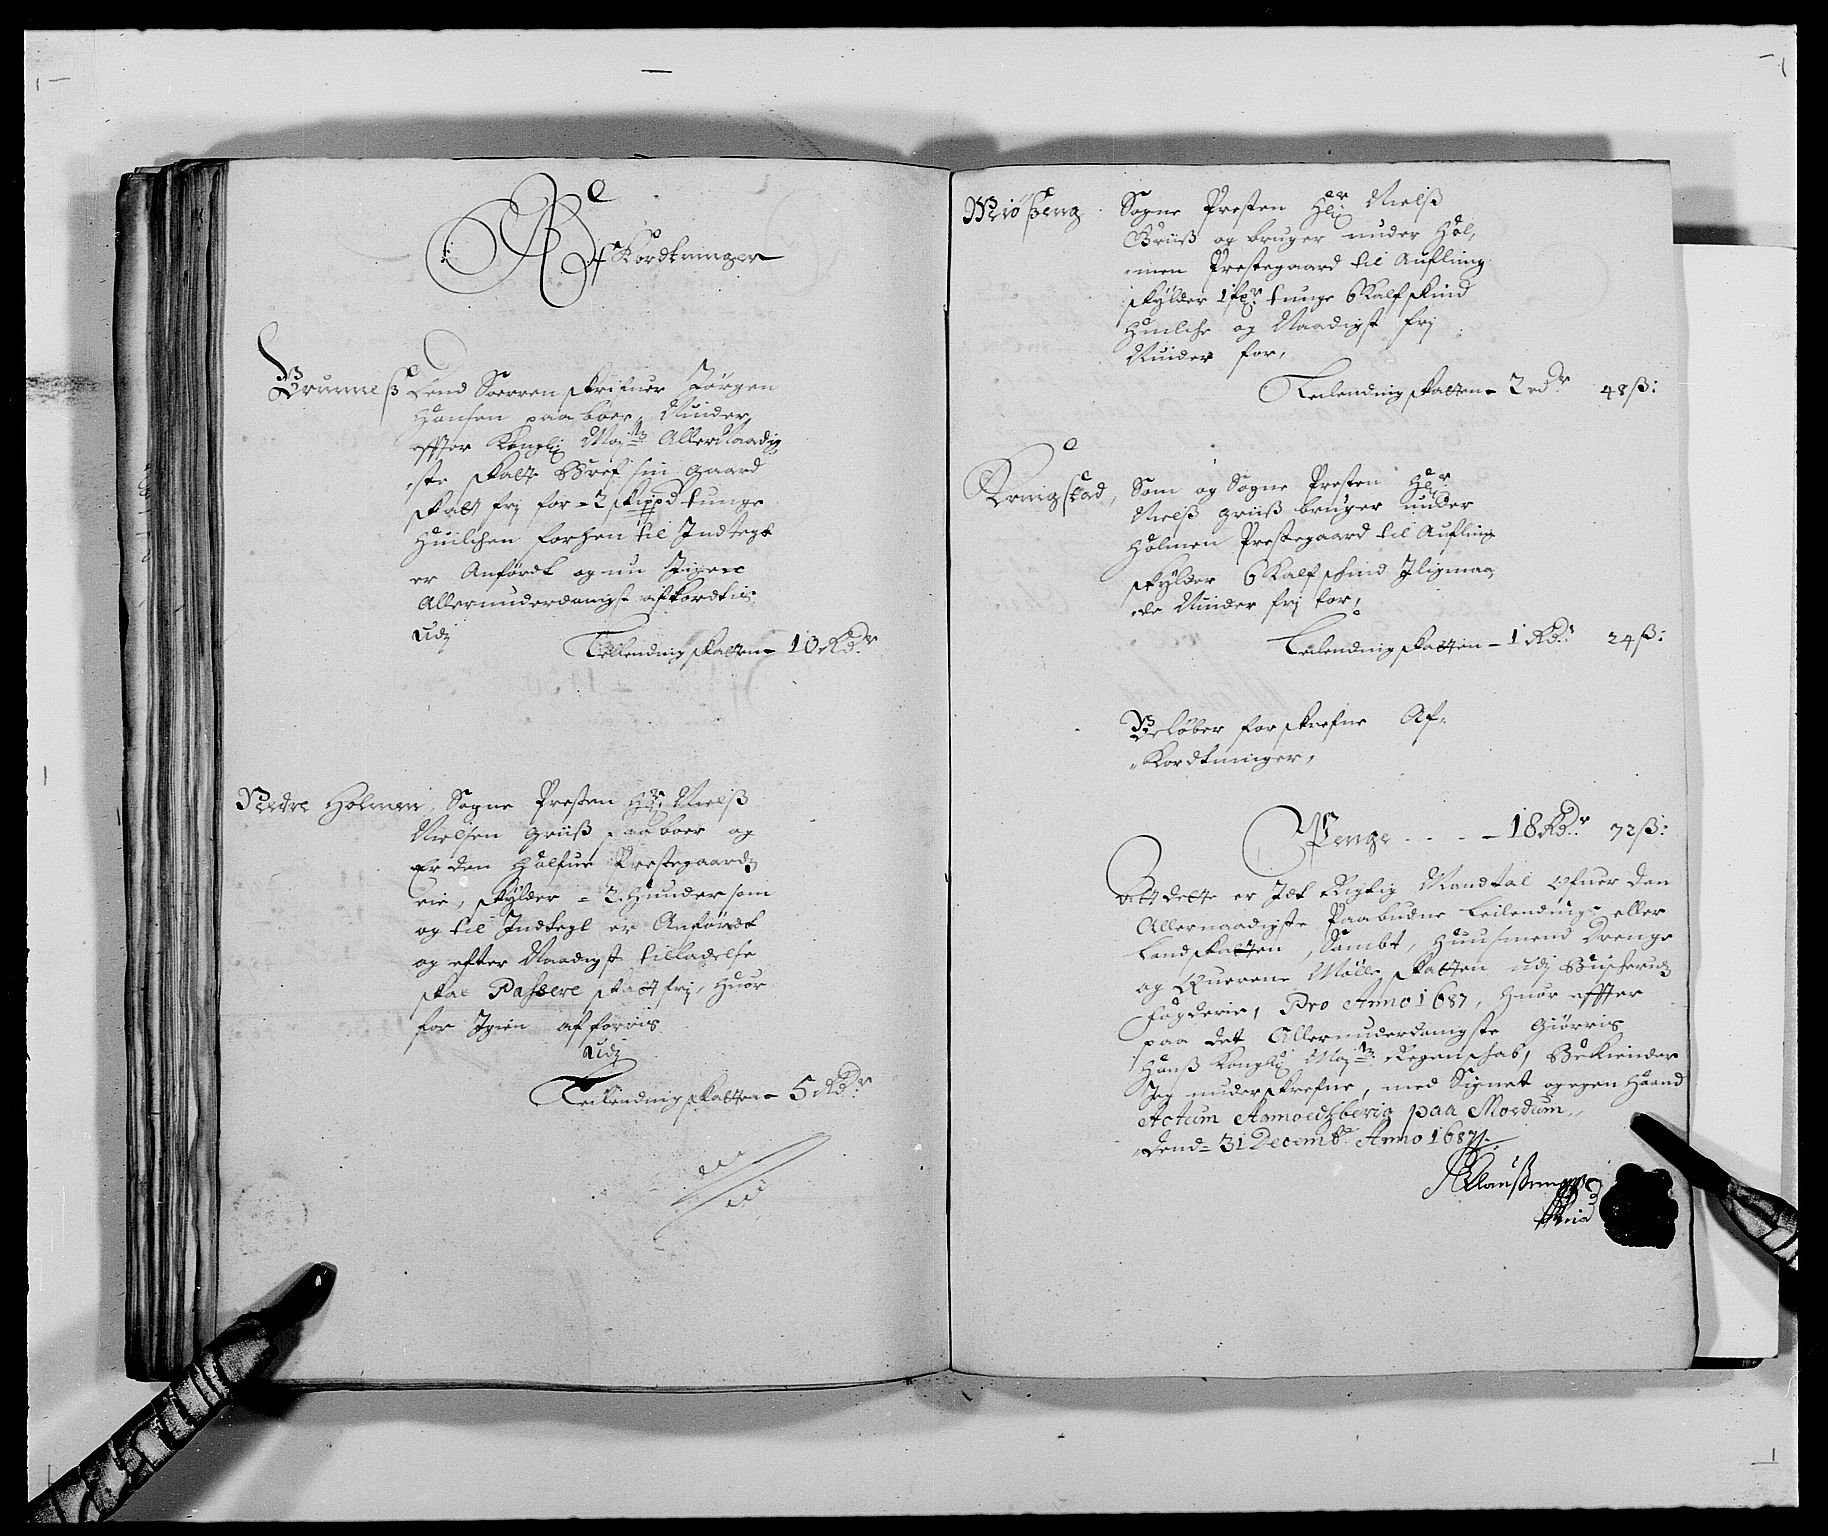 Af Kordtninger
Brunneß Lend Soerren skrifuer Jørgen
Hansen paaboer, Nuider
effter Kongl: Maj:tz AllerNaadig,
ste skatte Bref sin gaard
skatt frj for = 2 skippd tunge
Huilchen forhen til Indtegt
er Anførdt og nu Igien
Allerunderdanigst afkordtis
Udj
Leilending skatten - 10 Rd:r
Nedre Holmen, Sogne Presten Hr: Nielß
Nielsen Griiß paaboer og
Er den Halfue Prestegaardz
eie, skylder = 2 Hunder som
og til Indtegt er Anførdt
og efter Naadigst tilladelse
skal Passere skatt frj, Huor
for Igien afføris
Udj
Leilending skatten - 5 Rd:r
Sogne Presten Hr: Nielß
Griiß og bruger under Hol,
men Prestegaard til Aufling
skylder 1 fr: tunge 6 Kalfskind
Huilche og Naadigst frj
Nuider for,
Leilending skatten - 2 rd:r 48 ß:
Som og Sogne Presten Hr:
Nielß Griiß bruger under
Holmen Prestegaard til Aufling
skylder 6 Kalfschind Iligemaa,
de Nuider frj for,
Leilending skatten - 1 Rd:r 24 ß:
Beløber forskrefne Af,
Kordtninger,
Penge - 18 Rd:r 72 ß:
Att dette er Itt Rigtig Mandtal Ofuer den
Allernaadigste Paabudne Leilendings eller
Landskatten, Sambt, Huusmend Drenge
og Querne Mølle skatten udj Buscherudz
Fogderie, Pro Anno 1687, Huor effter
paa det Allerunderdanigste Giørris
Hanß Kongl: Maj:tz Regenschab, Bekiender
Jeg underskrefne, med Signet og egen Haand
Actum paa Moedum,
Dend = 31 Decemb: Anno 1687.